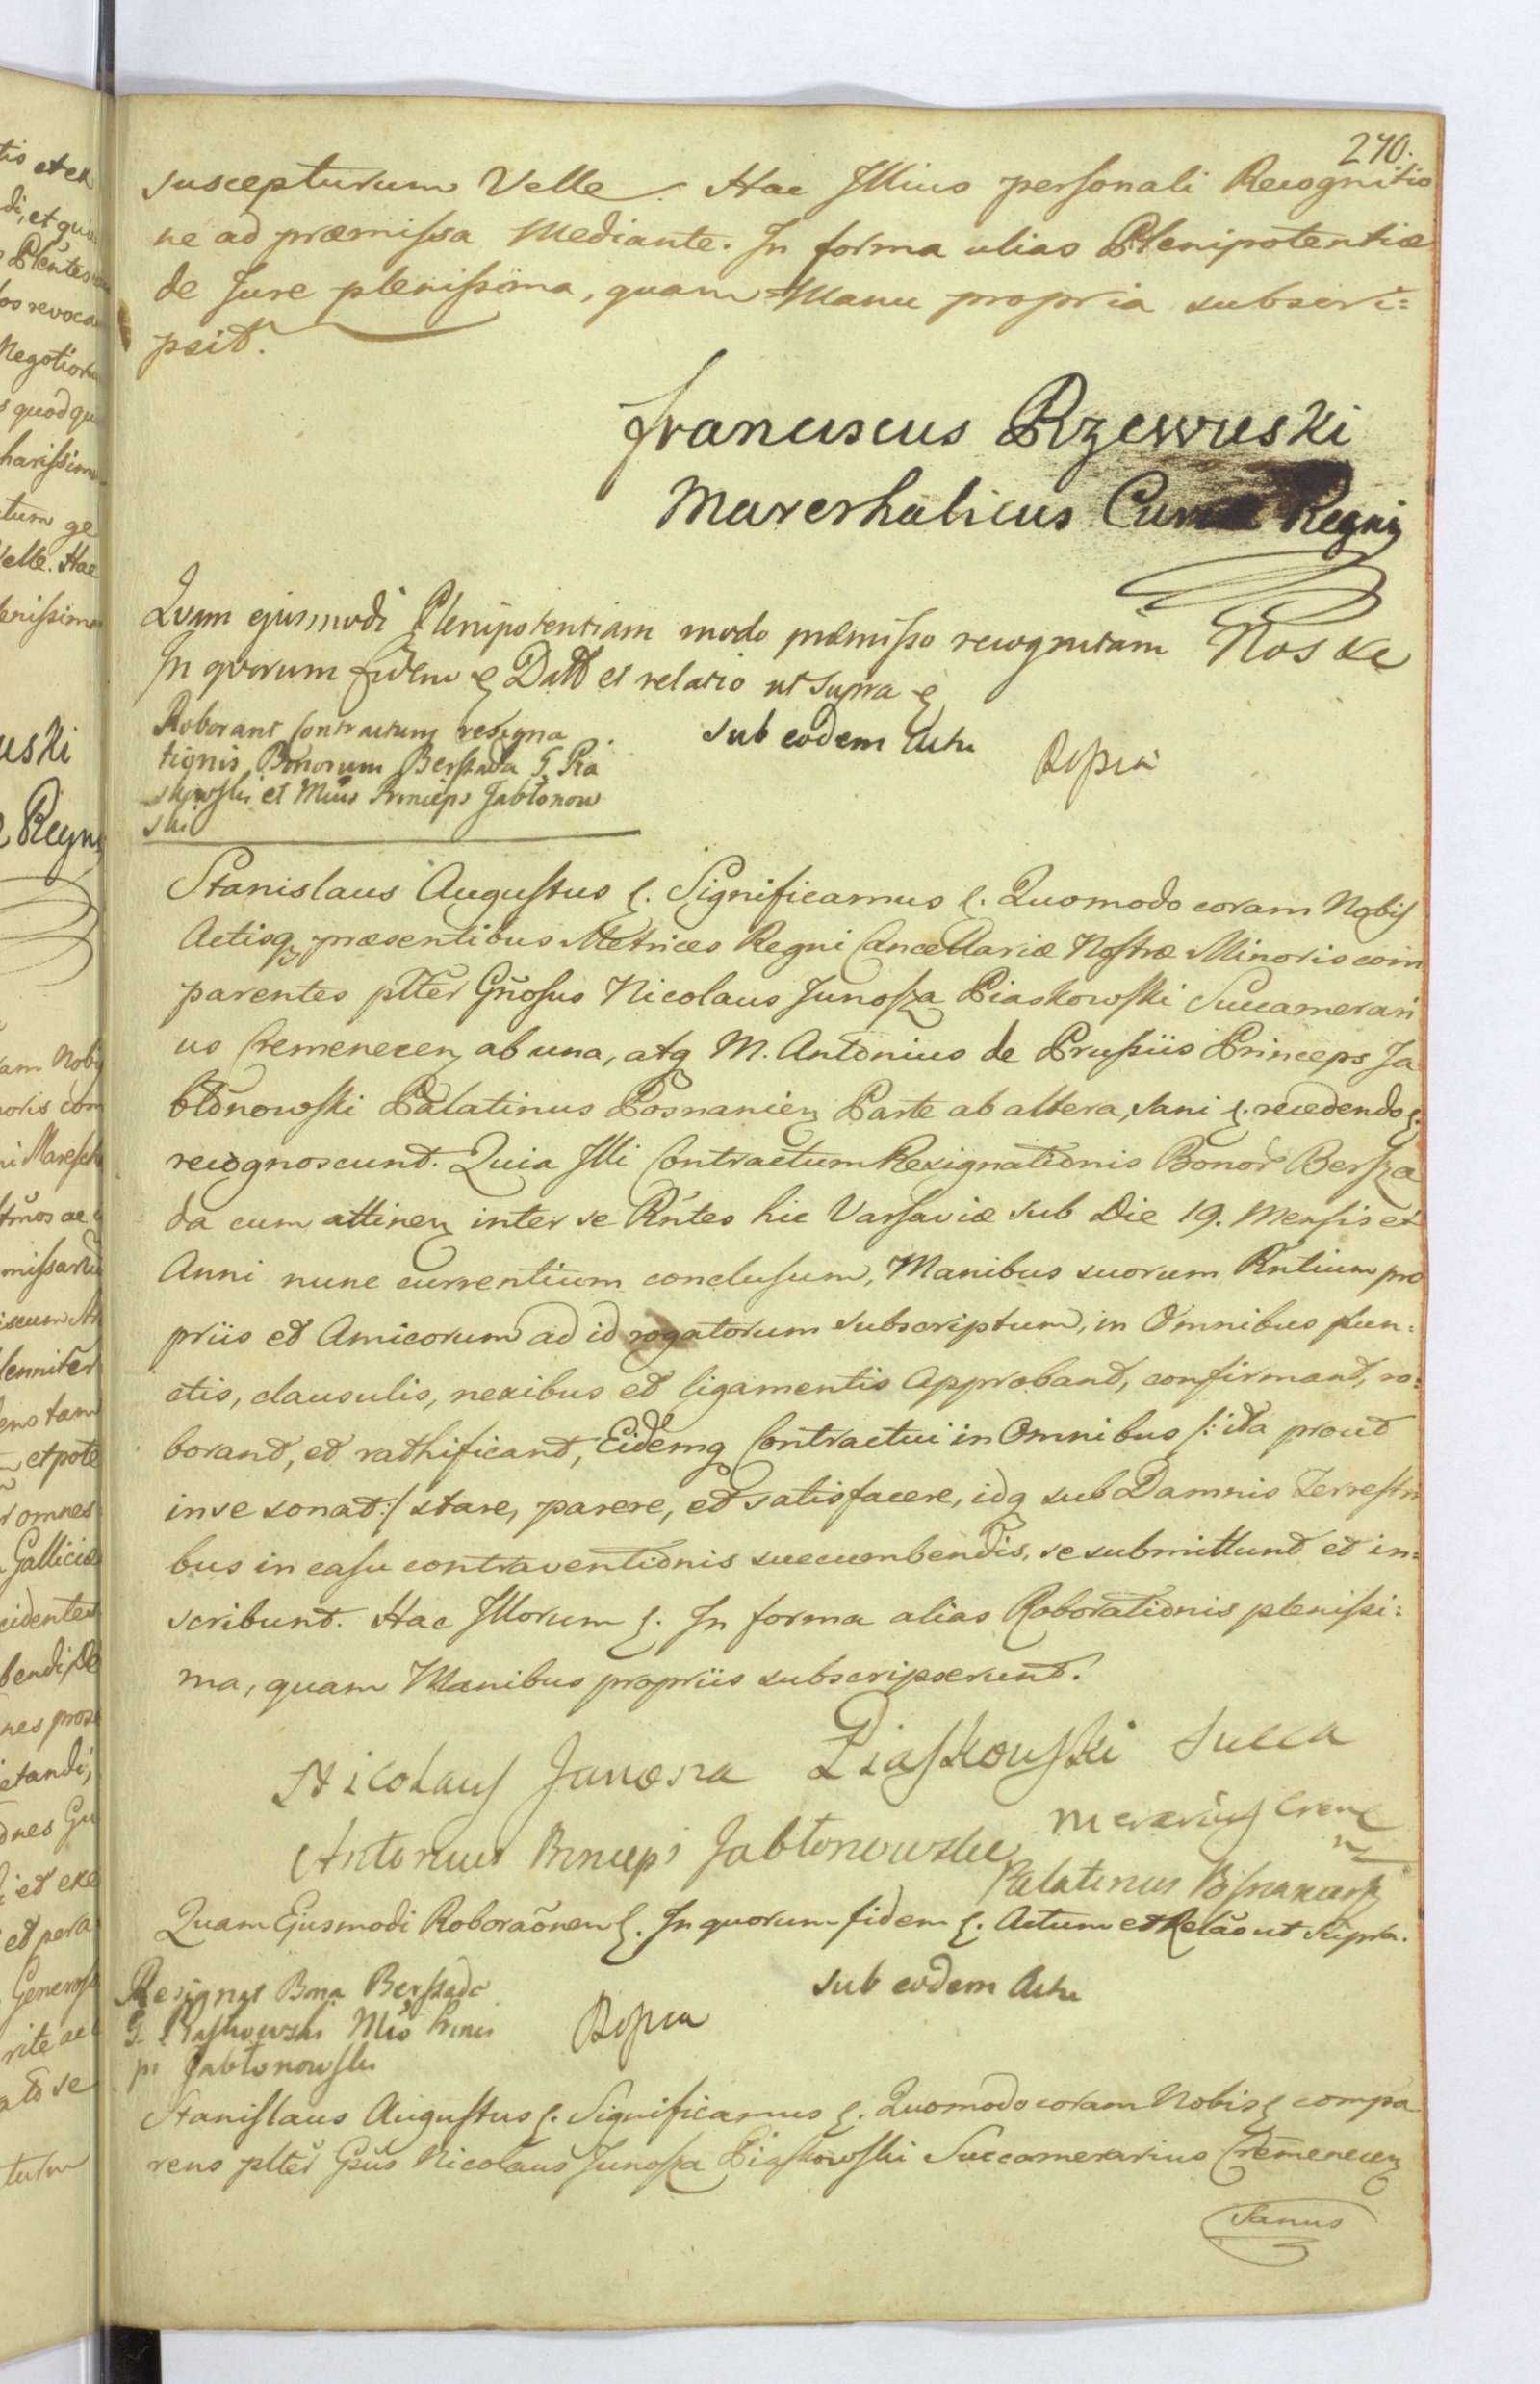 270.
suscepturum Velle. Hac Illius personali Recognitio
ne ad præmissa Mediante. In forma alias Plenipotentiæ
de Jure plenissima, quam Manu propria subscri=
psit.
Franciscus Rzewuski
Mareschalicus Curiæ Regni
Quam ejusmodi Plenipotentiam modo præmisso recognitam Nos &c
In quorum fidem &c Datt et relatio ut supra &c
Roborant Contractum resigna
tionis Bonorum Berszada G. Pia
skowski et Mcus Princeps Jabłonow
ski
sub eodem Actu
Stanislaus Augustus &. Significamus &. Quomodo coram Nobis
Actisq præsentibus Metrices Regni Cancellariæ Nostræ Minoris com
parentes pltter Gñosus Nicolaus Junosza Piaskowski Succamerari
us Cremenecen ab una, atq M. Antonius de Prussiis Princeps Ja
błonowski Palatinus Posnanien Parte ab altera, sani &. recedendo &.
recognoscunt. Quia Illi Contractum Resignationis Bonor Bersza
da cum attinen inter se Rntes hic Varsaviæ sub Die 19. Mensis et
Anni nunc currentium conclusum, Manibus suorum Rntium pro
priis et Amicorum ad id rogatorum subscriptum, in Omnibus pun=
ctis, clausulis, nexibus et ligamentis Approbant, confirmant, ro=
borant, et rathificant, Eidemq Contractui in Omnibus /: ita prout
in se sonat :/ stare, parere, et satisfacere, idq sub Damnis Terrestri
bus in casu contraventionis succumbendis, se submittunt et in=
scribunt. Hac Illorum &. In forma alias Roborationis plenissi=
ma, quam Manibus propriis subscripserunt.
Nicolaus Junosza Piaskowski Succa
merarius Crem
Antonius Princeps Jabłonowski
Palatinus Posnanien
Quam Ejusmodi Roboraõnem &. In quorum fidem &. Actum et Relão ut Supra.
Resignat Bona Berszada
G. Piaskowski Mco Princi
pi Jabłonowski
sub eodem Actu
Stanislaus Augustus &. Significamus &. Quomodo coram Nobis & compa
rens pltter Gñsus Nicolaus Junosza Piaskowski Succamerarius Cremenecen
Sanus